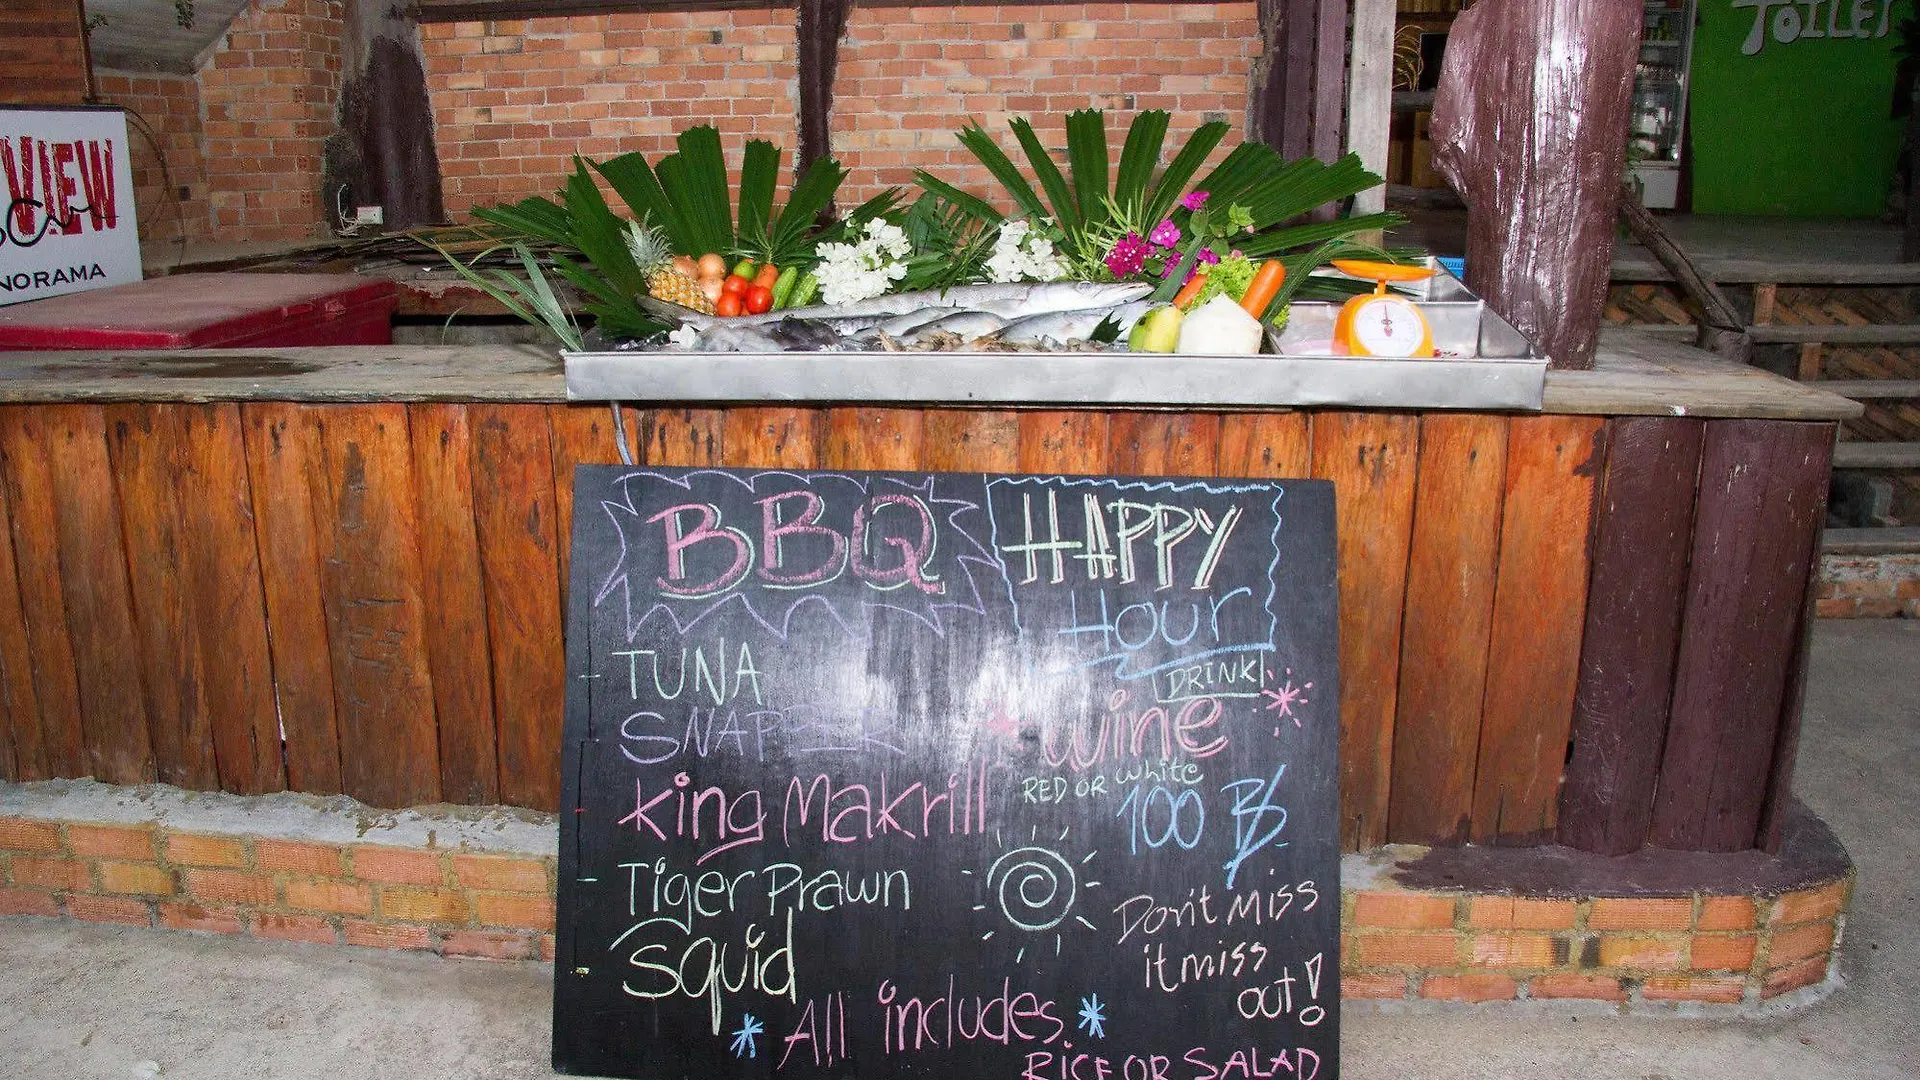 TOILET
VIEW
NORAMA
BBQ
TUNA
SNAPPER
King Makrill
Tiger Prawn
Squid
HAPPY
Hour
DRINK
wine
RED OR white
100 ฿
Don't miss
it miss
out!
All includes
RICE OR SALAD